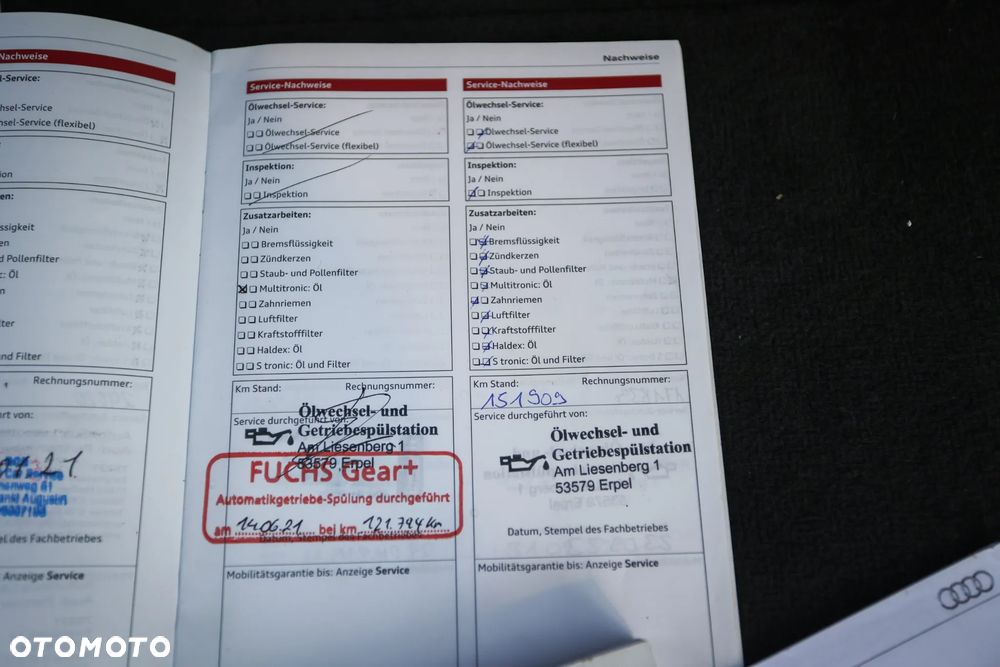 Nachweise
l-Service:
hsel-Service
hsel-Service (flexibel)
ion
en:
ssigkeit
en
d Pollenfilter
c: Öl
n
ter
nd Filter
Rechnungsnummer:
rt von:
21
el des Fachbetriebes
Anzeige Service
Nachweise
Service-Nachweise
Ölwechsel-Service:
Ja / Nein
Ölwechsel-Service
Ölwechsel-Service (flexibel)
Inspektion:
Ja / Nein
Inspektion
Zusatzarbeiten:
Ja / Nein
Bremsflüssigkeit
Zündkerzen
Staub- und Pollenfilter
Multitronic: Öl
Zahnriemen
Luftfilter
Kraftstofffilter
Haldex: Öl
S tronic: Öl und Filter
Km Stand: Rechnungsnummer:
Service durchgeführt von:
Ölwechsel- und
Getriebespülstation
Am Liesenberg 1
53579 Erpel
FUCHS Gear+
Automatikgetriebe-Spülung durchgeführt
am 14.06.21 bei km 121.794 km
Datum, Stempel des Fachbetriebes
Mobilitätsgarantie bis: Anzeige Service
Service-Nachweise
Ölwechsel-Service:
Ja / Nein
Ölwechsel-Service
Ölwechsel-Service (flexibel)
Inspektion:
Ja / Nein
Inspektion
Zusatzarbeiten:
Ja / Nein
Bremsflüssigkeit
Zündkerzen
Staub- und Pollenfilter
Multitronic: Öl
Zahnriemen
Luftfilter
Kraftstofffilter
Haldex: Öl
S tronic: Öl und Filter
Km Stand: Rechnungsnummer:
151909
Service durchgeführt von:
Ölwechsel- und
Getriebespülstation
Am Liesenberg 1
53579 Erpel
Datum, Stempel des Fachbetriebes
Mobilitätsgarantie bis: Anzeige Service
OTOMOTO